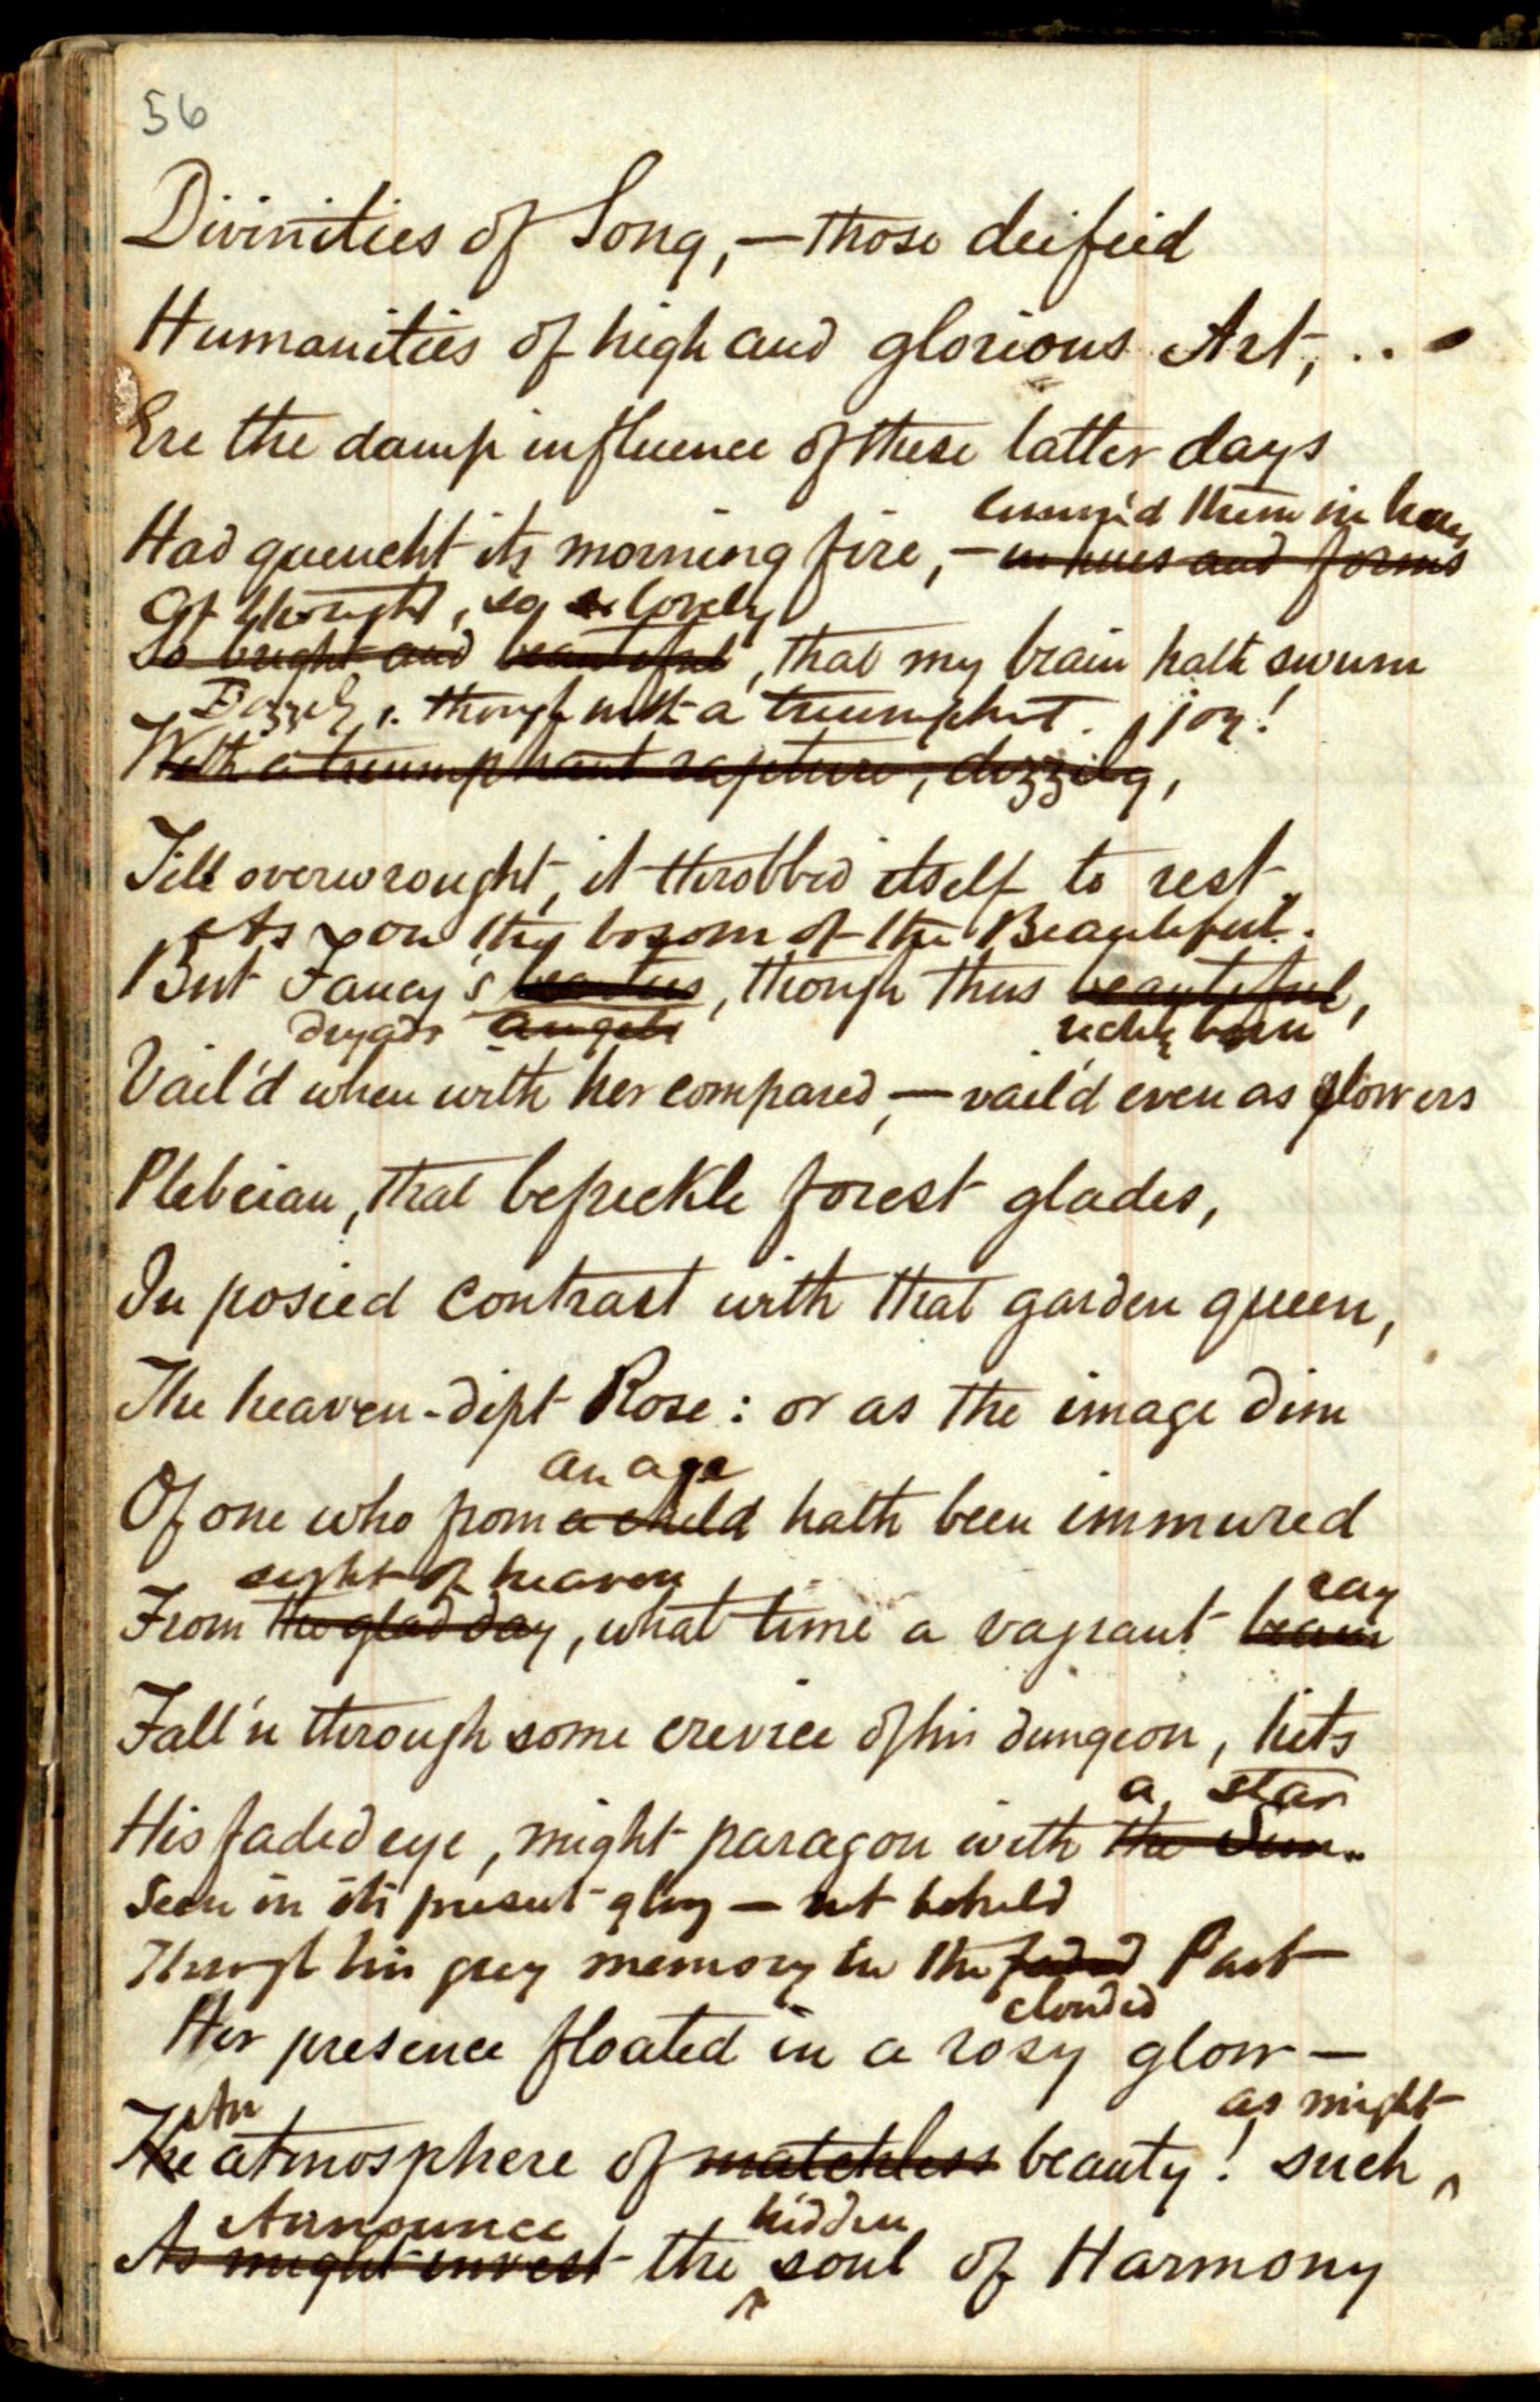 56
Divinities of Song, — those deified
Humanities of high and glorious Art, ..
Ere the damp influence of these latter days
them in hues
Had quencht its morning fire, — in hues and forms
Of thought, so lovely
So bright and beautiful, that my brain hath swum
though with a triumphant joy!
With a triumphant rapture, dizzily,
Till overwrought, it throbbed itself to rest.
As on the bosom of the Beautiful.
But Fancy's beauties, though thus beautiful,
dryads angels richly born
Vail'd when with her compared, — vail'd even as flowers
Plebeian, that befreckle forest glades,
In posied contrast with that garden queen,
The heaven-dipt Rose: or as the image dim
an age
Of one who from a child hath been immured
sight of heaven ray
From the glad day, what time a vagrant beam
Fall'n through some crevice of his dungeon, hits
a star
His faded eye, might paragon with the Sun.
Seen in its present glory — not beheld
Through his grey memory in the faded Past
clouded
Her presence floated in a rosy glow —
An as might
The atmosphere of matchless beauty! such
Announce hidden
As might invest the soul of Harmony